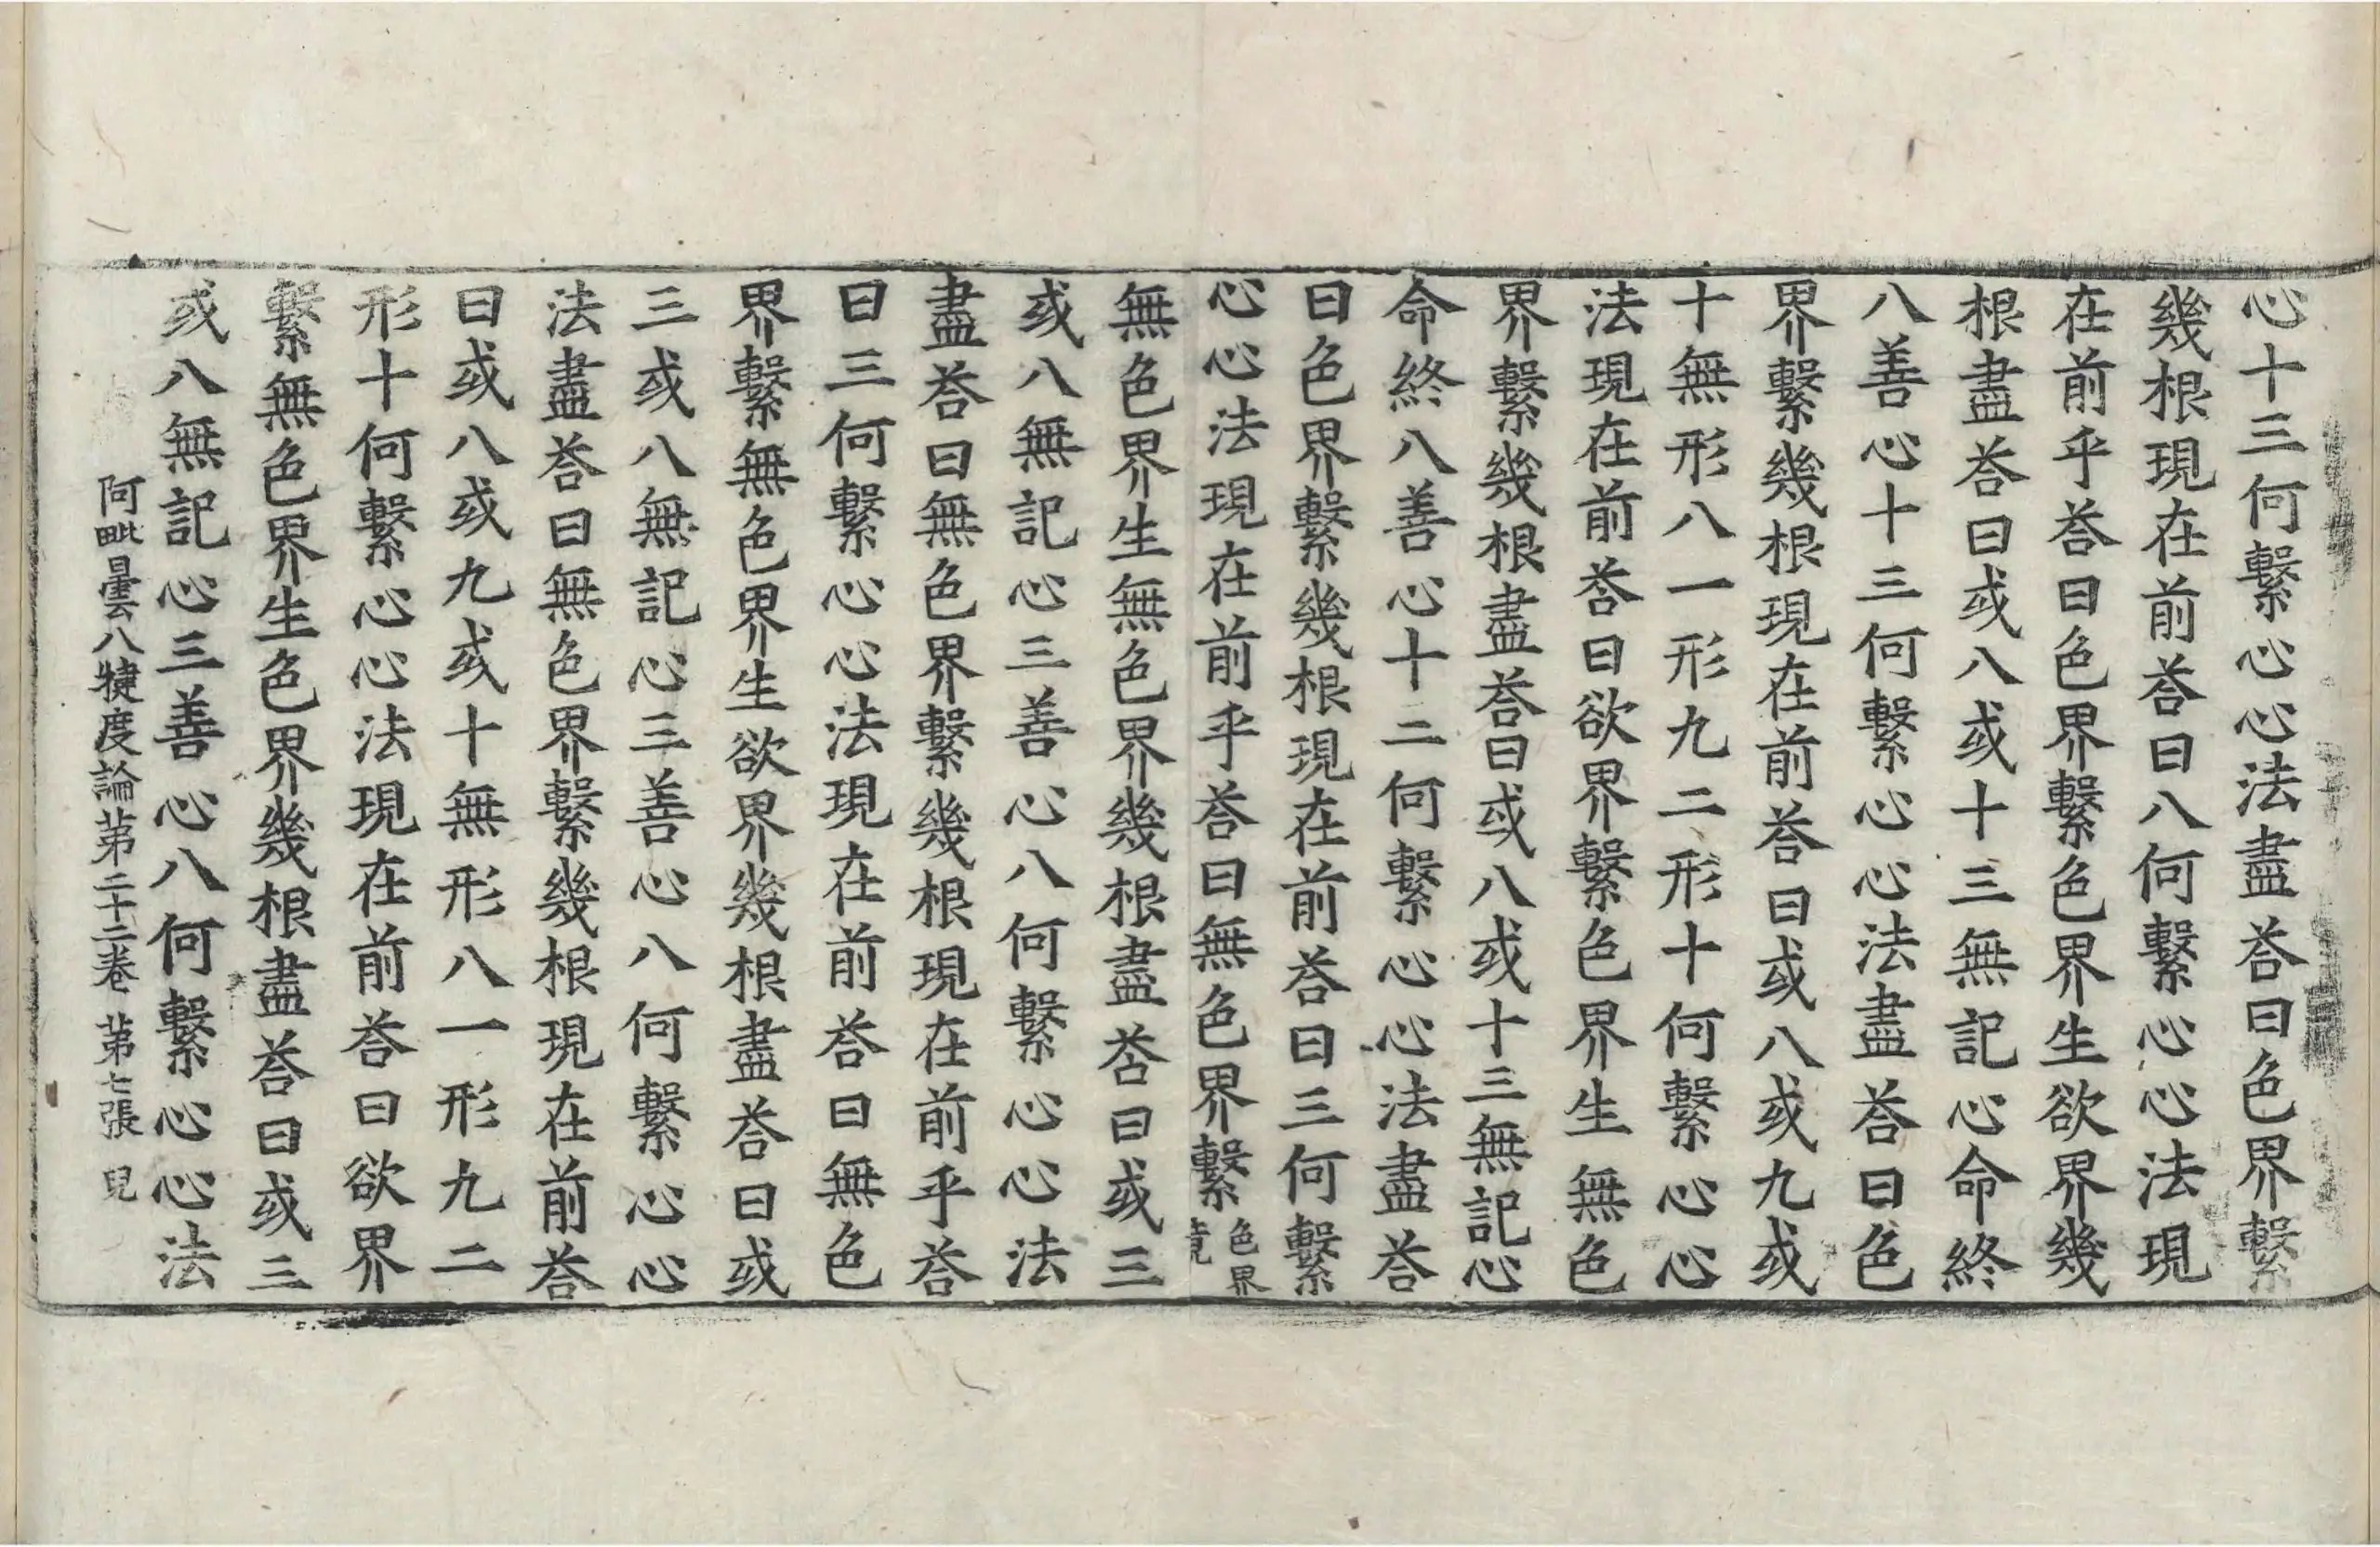 心十三何繫心心法盡荅曰色界繫
幾根現在前荅曰八何繫心心法現
在前乎荅曰色界繫色界生欲界幾
根盡荅曰或八或十三無記心命終
八善心十三何繫心心法盡荅曰色
界繫幾根現在前荅曰或八或九或
十無形八一形九二形十何繫心心
法現在前荅曰欲界繫色界生無色
界繫幾根盡荅曰或八或十三無記心
命終八善心十二何繫心心法盡荅
曰色界繫幾根現在前荅曰三何繫
心心法現在前乎荅曰無色界繫色界竟
無色界生無色界幾根盡荅曰或三
或八無記心三善心八何繫心心法
盡荅曰無色界繫幾根現在前乎荅
曰三何繫心心法現在前荅曰無色
界繫無色界生欲界幾根盡荅曰或
三或八無記心三善心八何繫心心
法盡荅曰無色界繫幾根現在前荅
曰或八或九或十無形八一形九二
形十何繫心心法現在前荅曰欲界
繫無色界生色界幾根盡荅曰或三
或八無記心三善心八何繫心心法
阿毗曇八犍度論第二十二卷 第七張 皃